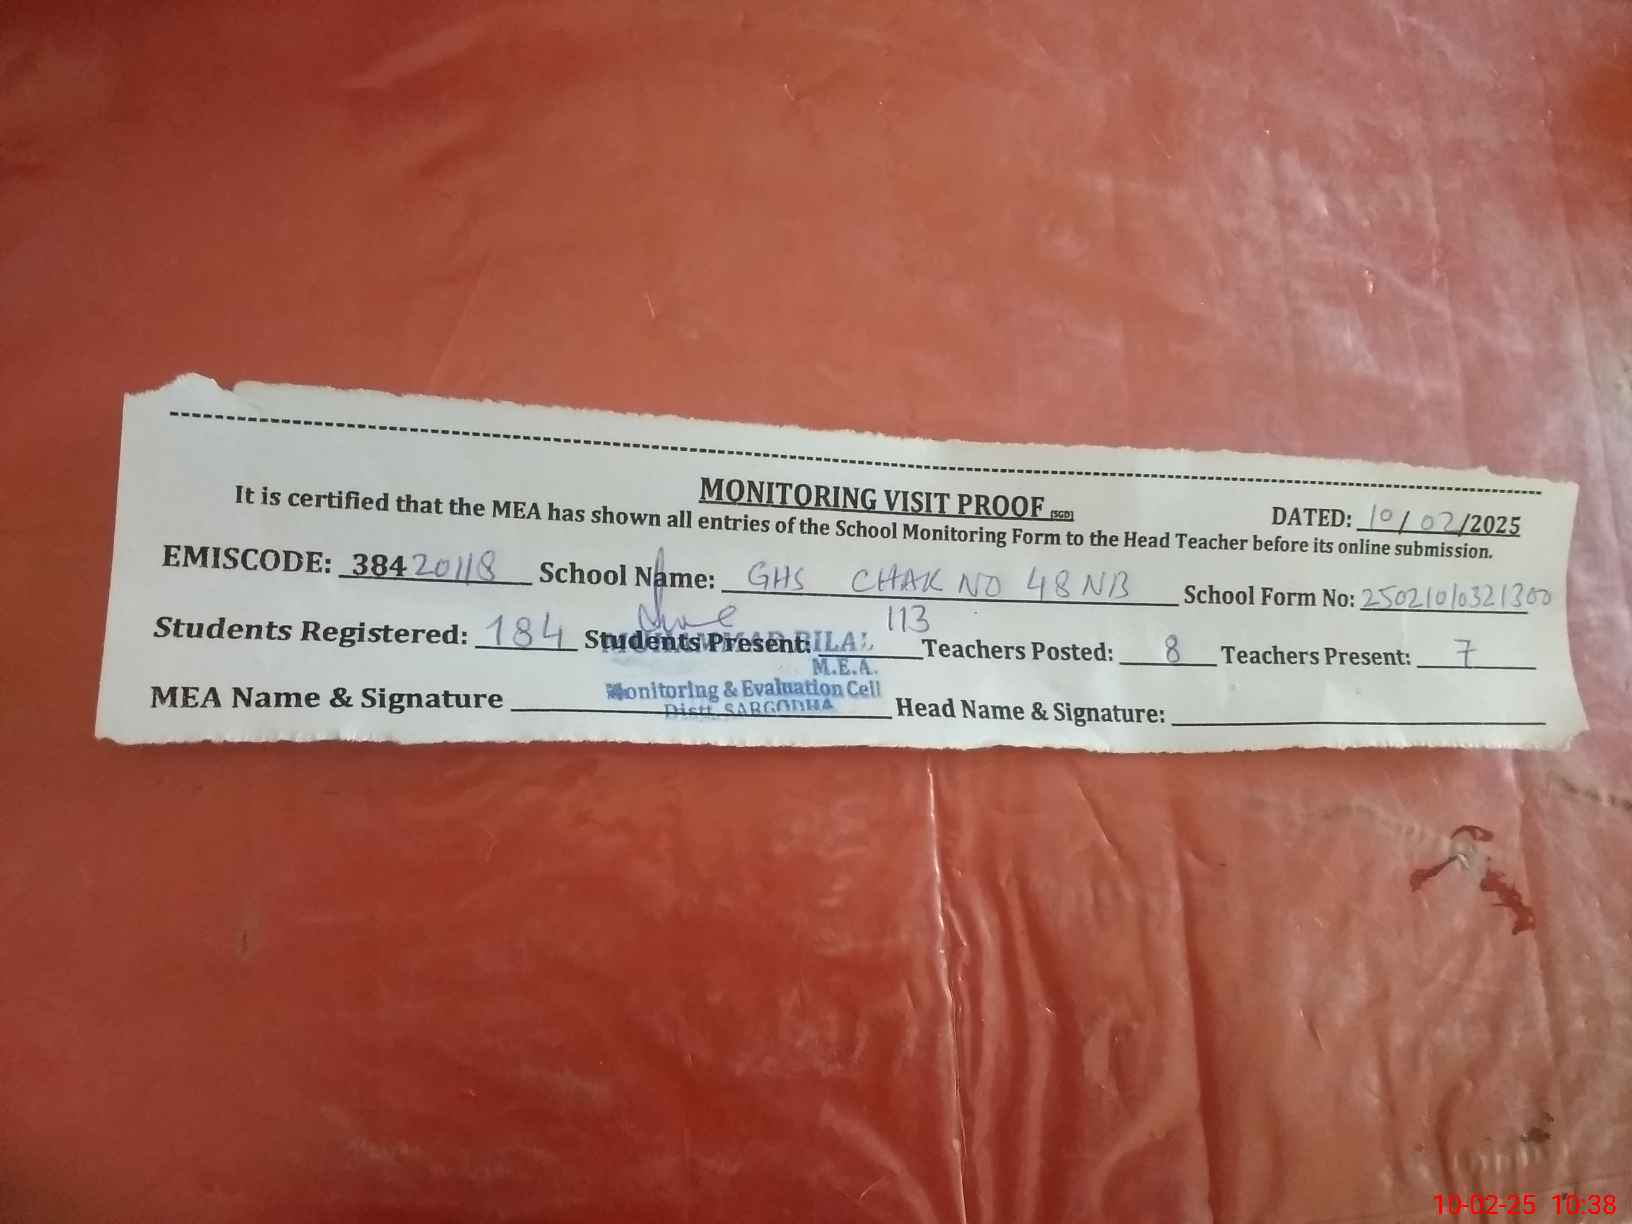 MONITORING VISIT PROOF [SGD] DATED: 10/02/2025
It is certified that the MEA has shown all entries of the School Monitoring Form to the Head Teacher before its online submission.
EMISCODE: 38420118 School Name: GHS CHAK NO 48 NB School Form No: 25021010321300
Students Registered: 184 Students Present: 113 Teachers Posted: 8 Teachers Present: 7
BILAL
M.E.A.
Monitoring & Evaluation Cell
Distt. SARGODHA
MEA Name & Signature Head Name & Signature:
10-02-25 10:38